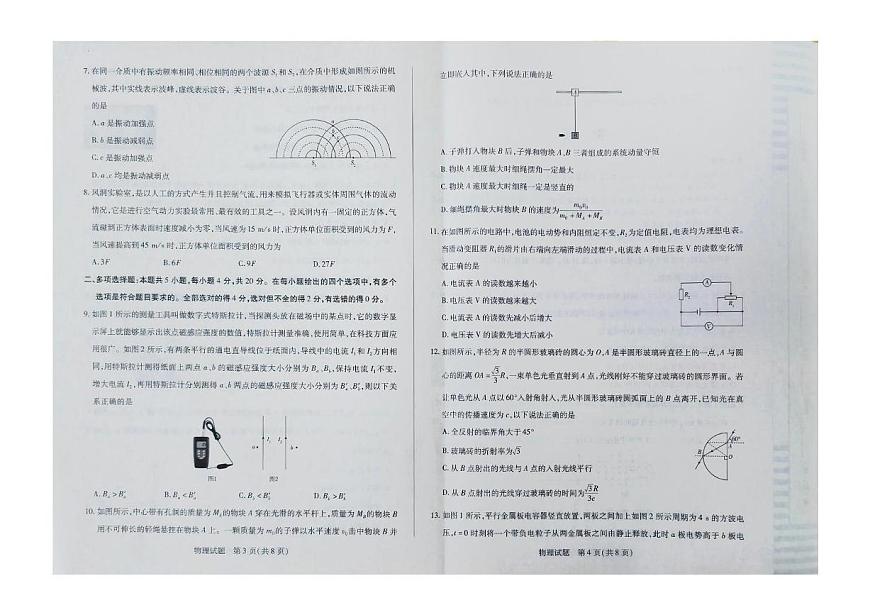 7. 在同一介质中有振动频率相同、相位相同的两个波源 S₁ 和 S₂, 在介质中形成如图所示的机
械波, 其中实线表示波峰, 虚线表示波谷。关于图中 a、b、c 三点的振动情况, 以下说法正确
的是
A. a 是振动加强点
B. b 是振动减弱点
C. c 是振动加强点
D. a、c 均是振动减弱点
a
b
c
S₁
S₂
8. 风洞实验室, 是以人工的方式产生并且控制气流, 用来模拟飞行器或实体周围气体的流动
情况, 它是进行空气动力实验最常用、最有效的工具之一。设风洞内有一固定的正方体, 气
流碰到正方体表面时速度减小为零, 当风速为 15 m/s 时, 正方体单位面积受到的风力为 F,
当风速提高到 45 m/s 时, 正方体单位面积受到的风力为
A. 3F B. 6F C. 9F D. 27F
二、多项选择题: 本题共 5 小题, 每小题 4 分, 共 20 分。在每小题给出的四个选项中, 有多个
选项是符合题目要求的。全部选对的得 4 分, 选对但不全的得 2 分, 有选错的得 0 分。
9. 如图 1 所示的测量工具叫做数字式特斯拉计, 当探测头放在磁场中的某点时, 它的数字显
示屏上就能够显示出该点磁感应强度的数值, 特斯拉计测量准确、使用简单, 在科技方面应
用很广。如图 2 所示, 有两条平行的通电直导线位于纸面内, 导线中的电流 I₁ 和 I₂ 方向相
同, 用特斯拉计测得纸面上两点 a、b 的磁感应强度大小分别为 Bₐ、B_b, 保持电流 I₁ 不变,
增大电流 I₂, 再用特斯拉计分别测得 a、b 两点的磁感应强度大小分别为 Bₐ′、B_b′, 则以下关
系正确的是
a
I₁
I₂
b
图1 图2
A. Bₐ > Bₐ′ B. Bₐ < Bₐ′ C. B_b < B_b′ D. B_b > B_b′
10. 如图所示, 中心带有孔洞的质量为 M_A 的物块 A 穿在光滑的水平杆上, 质量为 M_B 的物块 B
用不可伸长的轻绳悬挂在物块 A 上。一颗质量为 m₀ 的子弹以水平速度 v₀ 击中物块 B 并
物理试题 第 3 页(共 8 页)
立即嵌入其中, 下列说法正确的是
A. 子弹打入物块 B 后, 子弹和物块 A、B 三者组成的系统动量守恒
B. 物块 A 速度最大时细绳摆角一定最大
C. 物块 A 速度最大时细绳一定是竖直的
D. 细绳摆角最大时物块 B 的速度为 m₀v₀/(m₀ + M_A + M_B)
11. 在如图所示的电路中, 电池的电动势和内阻恒定不变, R₁ 为定值电阻, 电表均为理想电表。
当滑动变阻器 R₂ 的滑片由右端向左端滑动的过程中, 电流表 A 和电压表 V 的读数变化情
况正确的是
A. 电流表 A 的读数越来越小
B. 电压表 V 的读数越来越大
C. 电流表 A 的读数先减小后增大
D. 电压表 V 的读数先增大后减小
A
V
12. 如图所示, 半径为 R 的半圆形玻璃砖的圆心为 O, A 是半圆形玻璃砖直径上的一点, A 与圆
心的距离 OA = √3/3 R, 一束单色光垂直射到 A 点, 光线刚好不能穿过玻璃砖的圆形界面。若
让单色光从 A 点以 60° 入射角射入, 光从半圆形玻璃砖圆弧面上的 B 点离开, 已知光在真
空中的传播速度为 c, 以下说法正确的是
A. 全反射的临界角大于 45°
B. 玻璃砖的折射率为 √3
C. 从 B 点射出的光线与 A 点的入射光线平行
D. 从 B 点射出的光线穿过玻璃砖的时间为 √3R/3c
A
60°
B
O
13. 如图 1 所示, 平行金属板电容器竖直放置, 两板之间加上如图 2 所示周期为 4 s 的方波电
压, t = 0 时刻将一个带负电粒子从两金属板之间由静止释放, 此时 a 板电势高于 b 板电
物理试题 第 4 页(共 8 页)